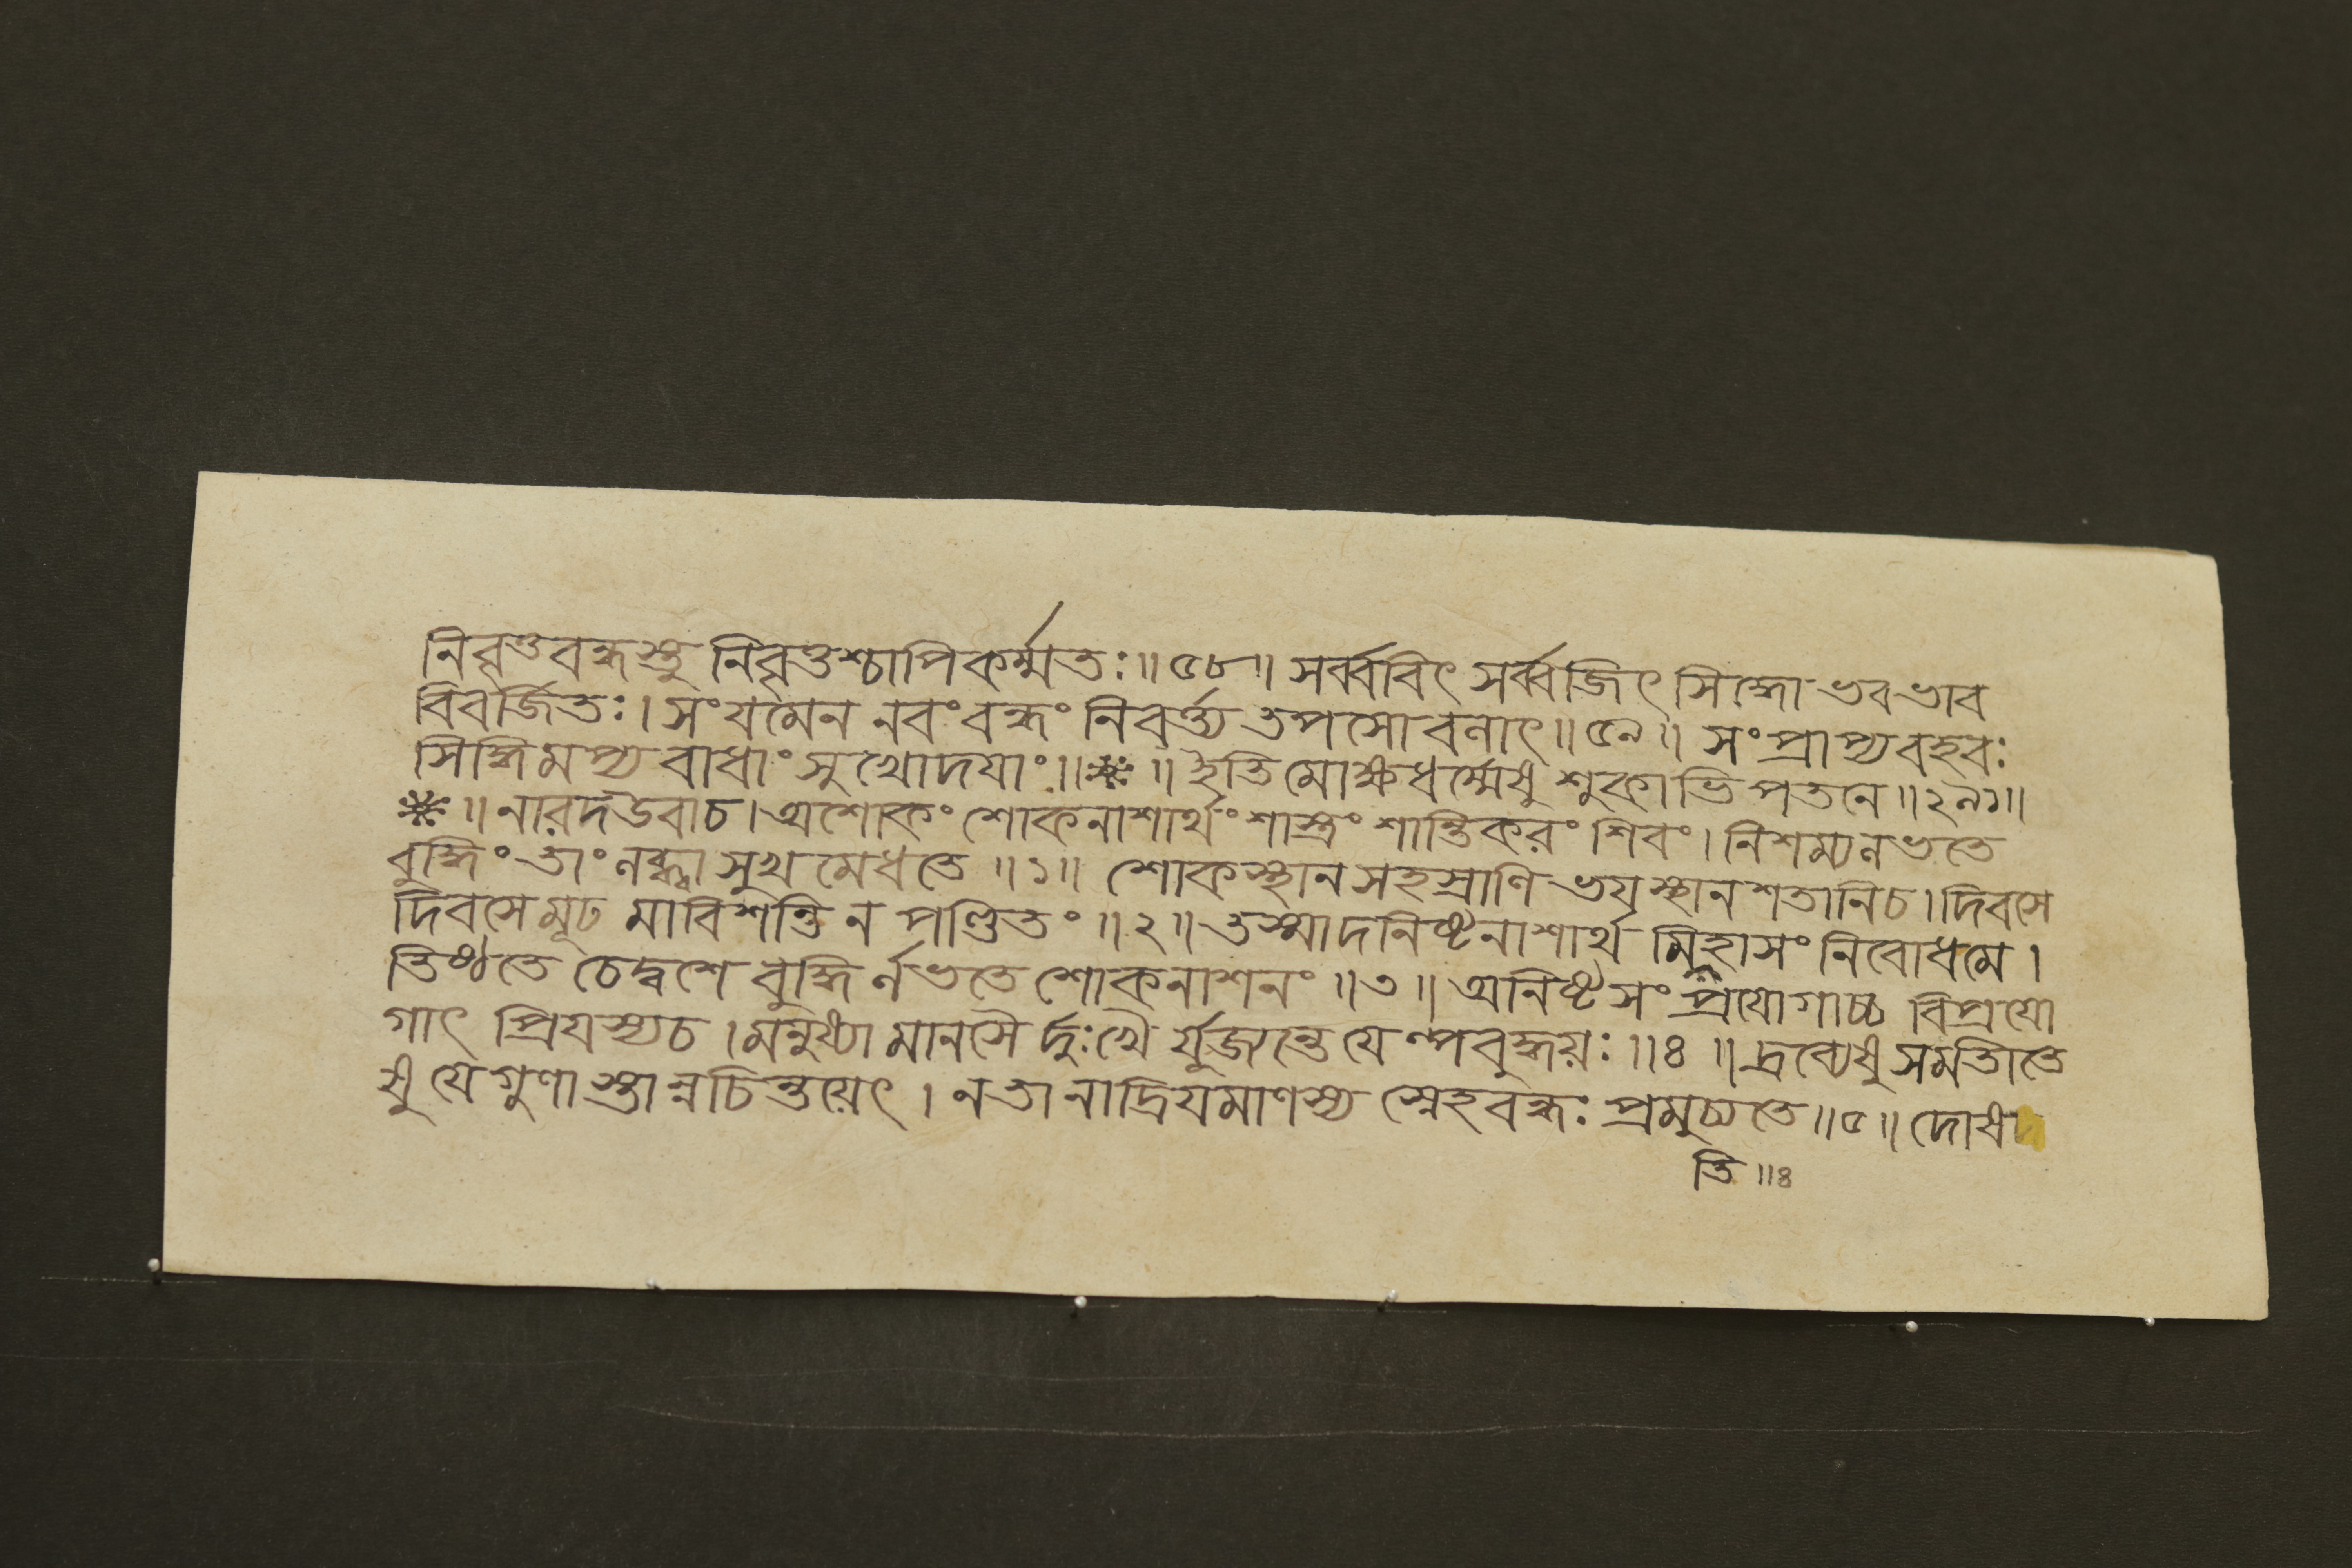 নিবৃত্তবন্ধস্তু নিবৃত্তশ্চাপিকর্ম্মতঃ॥৫৮॥ সর্ব্ববিৎ সর্ব্বজিৎ সিদ্ধো ভবভাব
বিবর্জিতঃ। সংযমেন নবং বন্ধং নিবর্ত্ত্য তপসোবলাৎ॥৫৯॥ সংপ্রাপ্যবহবঃ
সিদ্ধিমপ্যবাধাং সুখোদয়াং॥※॥ ইতি মোক্ষধর্ম্মেষু শুকাভিপতনে॥২৯১॥
※॥ নারদউবাচ। অশোকং শোকনাশার্থং শাস্ত্রং শান্তিকরং শিবং। নিশম্যলভতে
বুদ্ধিং তাং লব্ধ্বা সুখমেধতে॥১॥ শোকস্থানসহস্রাণি ভয়স্থানশতানিচ। দিবসে
দিবসে মূঢমাবিশন্তি ন পণ্ডিতং॥২॥ তস্মাদনিষ্টনাশার্থমিতিহাসং নিবোধমে।
তিষ্ঠতে চেদ্বশে বুদ্ধির্লভতে শোকনাশনং॥৩॥ অনিষ্টসংপ্রয়োগাচ্চ বিপ্রয়ো
গাৎ প্রিয়স্যচ। মনুষ্যা মানসৈর্দুঃখৈর্যুজ্যন্তে যেল্পবুদ্ধয়ঃ॥৪॥ দ্রব্যেষু সমতীতে
ষু যে গুণাস্তান্নচিন্তয়েৎ। নতানাদ্রিয়মাণস্য স্নেহবন্ধঃ প্রমুচ্যতে॥৫॥ দোষদ
তি॥৪